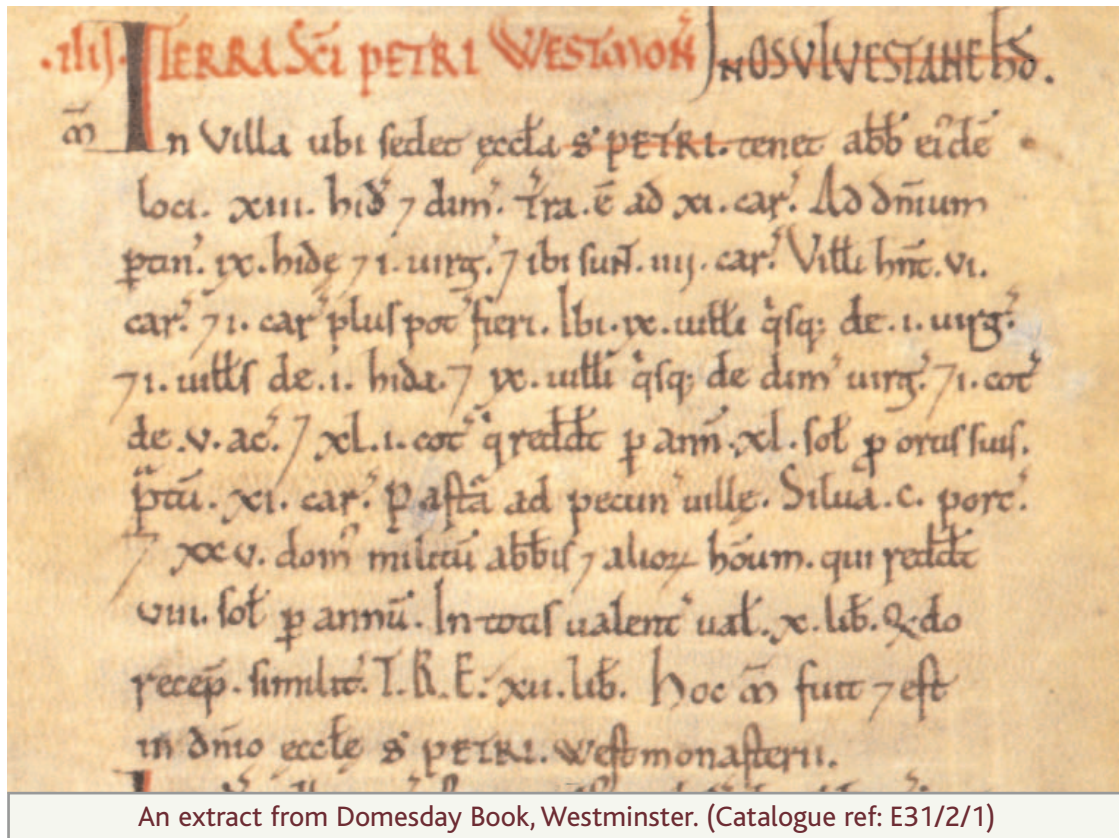 .iiij. TERRA Sc̃i PETRI WESTMON̄ IN OSVLVESTANE hō.
m̄ In Villa ubi sedet eccła s̄ PETRI. tenet abb̄ ei'dē
loci. xiii. hid' ⁊ dim'. Tra. ē ad xi. car'. Ad dn̄ium
ꝑtin'. ix. hidę ⁊ i. uirg'. ⁊ ibi sunt̄. iiij. car'. Vitti hn̄t. vi.
car'. ⁊ i. car' plus pot' fieri. Ibi. ix. uitti q̇sq; de. i. uirg'.
⁊ i. uitts de. i. hida. ⁊ ix. uitti q̇sq; de dim' uirg'. ⁊ i. cot'
de. v. ac'. ⁊ xl. i. cot' q' reddt̄ ꝑ ann̄. xl. soł ꝓ ortis suis.
p̃tū. xi. car'. Pastā ad pecun' uille. Silua. c. porc'.
⁊ xxv. dom' militū abb̄is ⁊ alioꝝ hōum. qui reddt̄
viii. soł ꝑ annū. In totis ualent' uał. x. lib̄. Q̇do
recep̄. similit'. T. R. E.' xii. lib̄. Hoc m̄ fuit ⁊ est
in dn̄io eccłę s̄ PETRI. westmonasterii.
An extract from Domesday Book, Westminster. (Catalogue ref: E31/2/1)